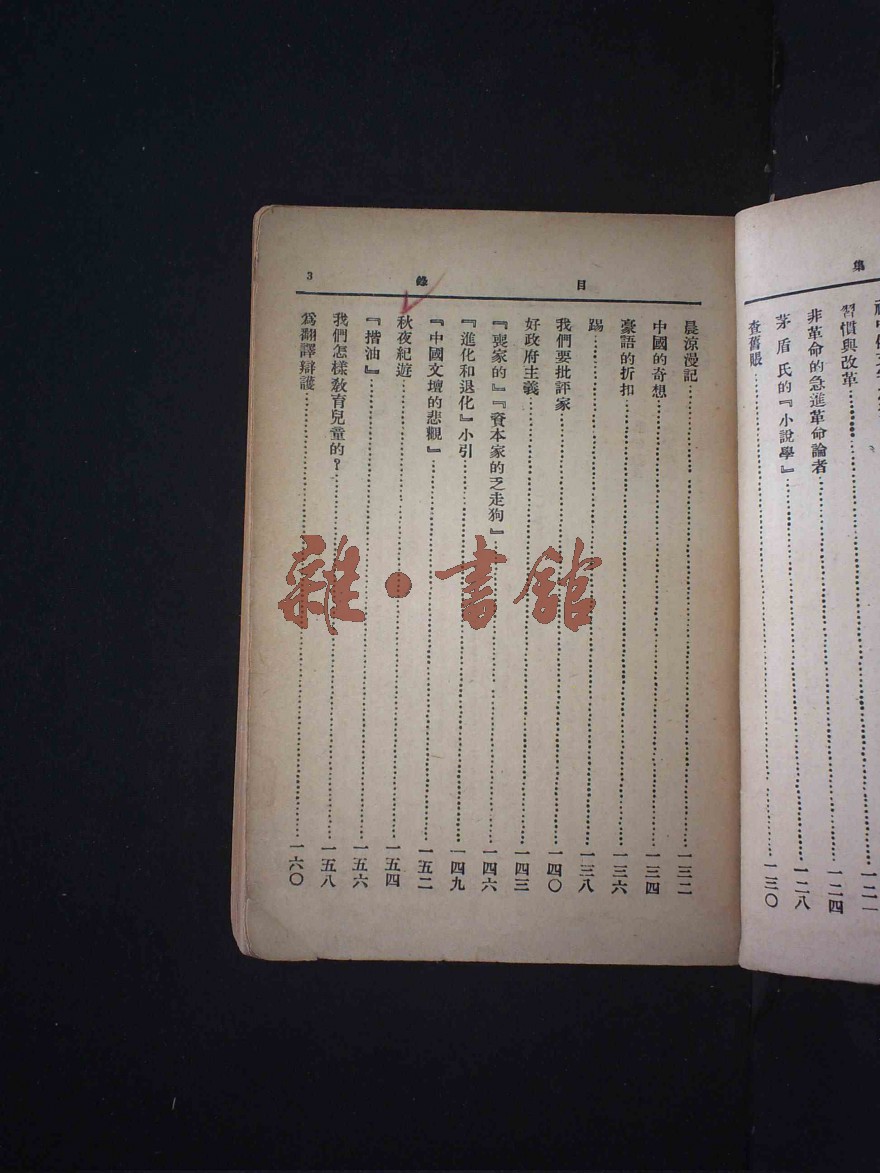 集
習慣與改革…………一二四
非革命的急進革命論者…………
茅盾氏的『小說學』…………一二八
查舊賬…………一三〇
目錄 3
晨涼漫記…………一三二
中國的奇想…………一三四
豪語的折扣…………一三六
踢…………一三八
我們要批評家…………一四〇
好政府主義…………一四三
『喪家的』『資本家的乏走狗』…………一四六
『進化和退化』小引…………一四九
『中國文壇的悲觀』…………一五二
秋夜紀遊…………一五四
『揩油』…………一五六
我們怎樣敎育兒童的?…………一五八
爲翻譯辯護…………一六〇
雜·書館